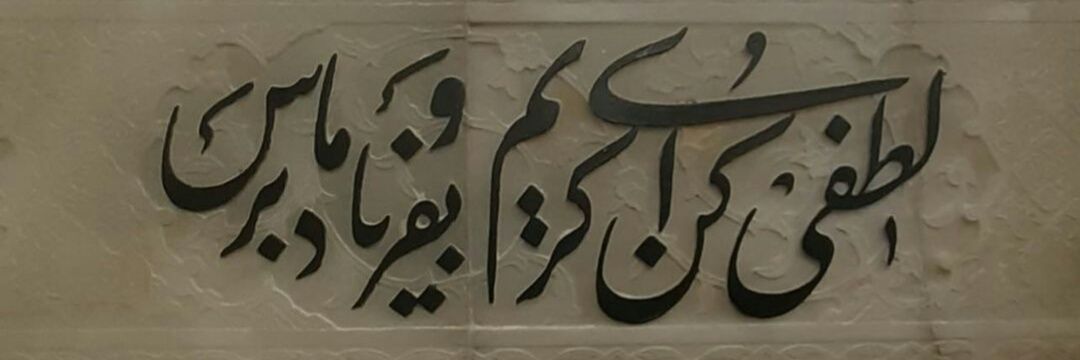 لطفی کن ای کریم و بفریاد ما برس